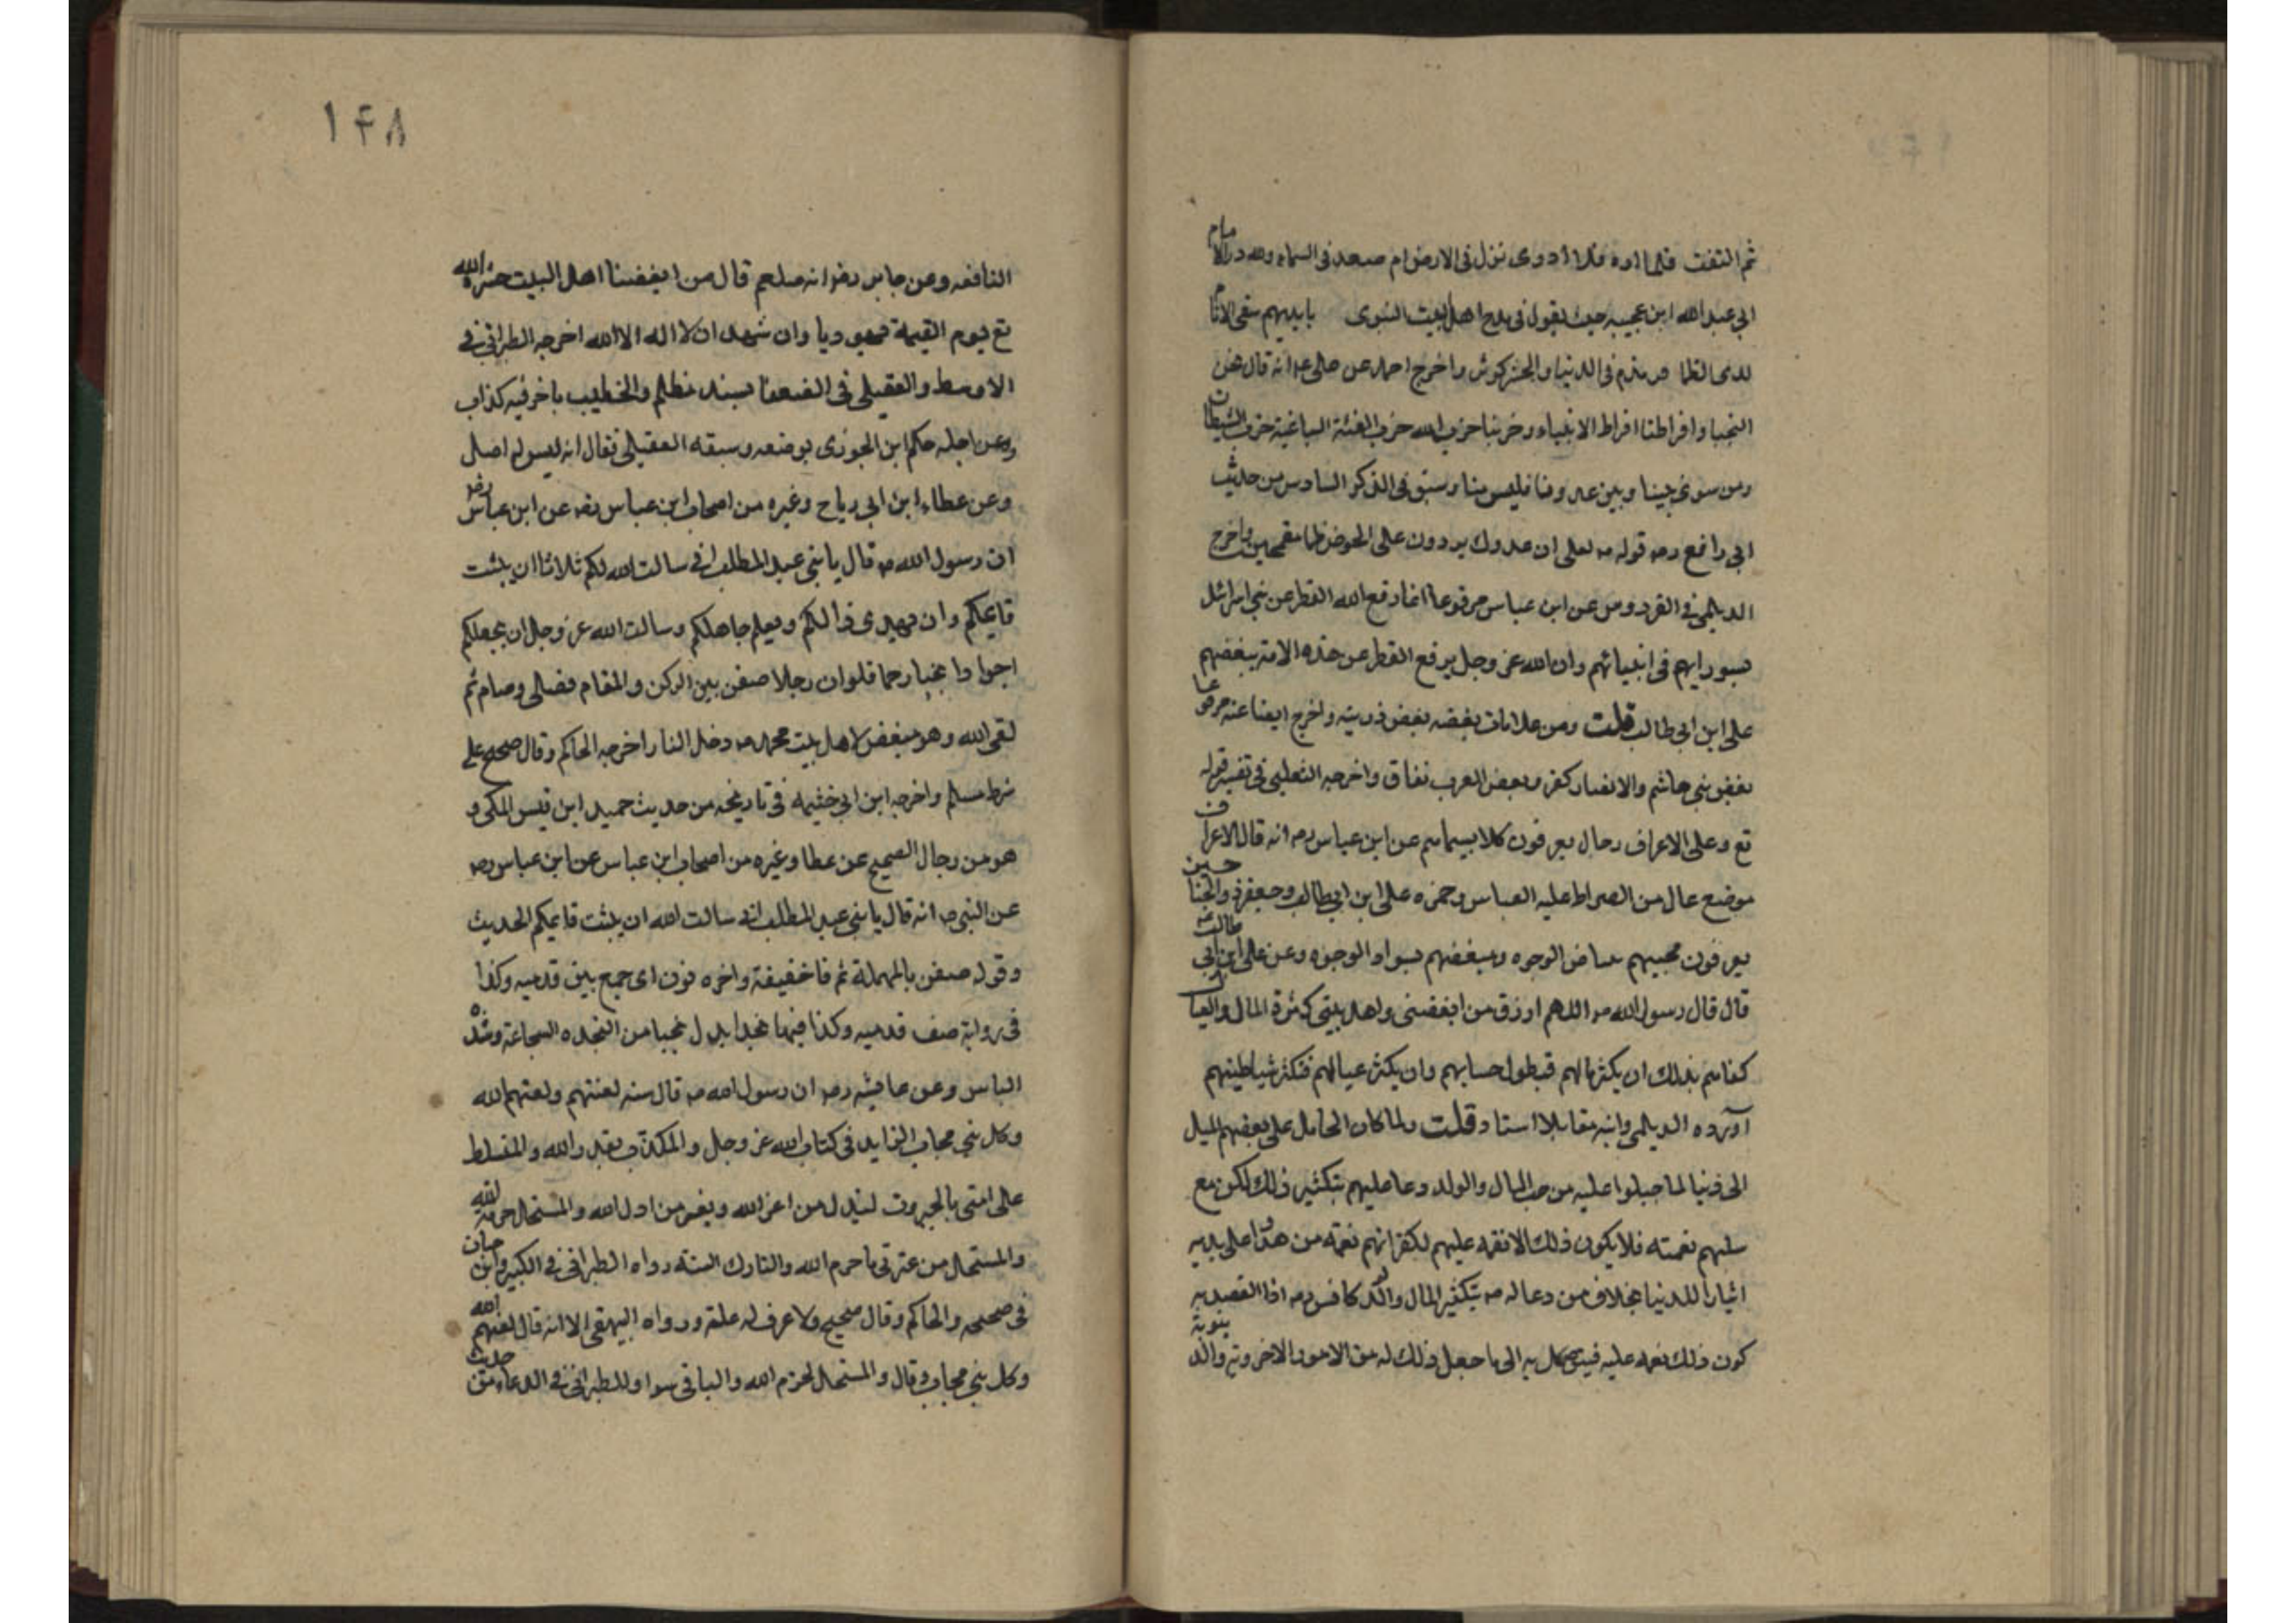 ثم التفت فلما اره فلا ادرى نزل فى الارض ام صعد فى السماء ولله در الامام
ابى عبد الله ابن عجيبه حيث يقول فى مدح اهل البيت النبوى بايديهم سقى الانام
لدى الظما فى الدنيا والحشر كوثر واخرج احمد عن على انه قال نحن
النجبا وافراطنا افراط الانبياء وحزبنا حزب الله حزب الفئة الباغية حزب الشيطان
ومن سوى بيننا وبين عدونا فليس منا وسبق فى الذكر السادس من حديث
ابى رافع رضه قوله صه لعلى ان عدوك يردون على الحوض ظما مقمحين واخرج
الديلمى فى الفردوس عن ابن عباس مرفوعا انما رفع الله القطر عن بنى اسرائل
بسو رايهم فى انبيائهم وان الله عز وجل يرفع القطر عن هذه الامة ببغضهم
على ابن ابى طالب قلت ومن علامات بغضه بغض ذريته واخرج ايضا عنه مرفوعا
بغض بنى هاشم والانصار كفر وبعض العرب نفاق واخرجه الثعلبى فى تفسير قوله
تع وعلى الاعراف رجال يعرفون كلا بسيماهم عن ابن عباس رضه انه قال الاعراف
موضع عال من الصراط عليه العباس وحمزه على ابن ابى طالب وجعفر ذو الجناحين
يعرفون محبيهم ببياض الوجوه ومبغضهم بسواد الوجوه وعن على ابن ابى طالب عنه
قال قال رسول الله صه اللهم ارزق من ابغضنى واهل بيتى كثرة المال والعيال
كفاهم بذلك ان يكثر مالهم فيطول حسابهم وان يكثر عيالهم فتكثر شياطينهم
آورده الديلمى وابنه مقابلا استاد قلت ولما كان الحامل على بغضهم الميل
الى دنيا لما جبلوا عليه من حب المال والولد دعا عليهم بتكثير ذلك لكن مع
سلبهم نعمته فلا يكون ذلك الا نقمه عليهم لكفرانهم نعمه من هدوا على يديه
اثيارا للدنيا بخلاف من دعا له صه بتكثير المال والولد كانس رضه اذا القصد به
كون ذلك نعمه عليه فيتوصل به الى ما جعل ذلك له من الامور الاخرويه والدنيويه
١۴٨
النافعه وعن جابر رضه انه صلعم قال من ابغضنا اهل البيت حشره الله
تع يوم القيمة يهوديا وان شهد ان لا اله الا الله اخرجه الطبرانى فى
الاوسط والعقيلى فى الضعفا بسند مظلم والخطيب باخر فيه كذاب
ومن اجله حكم ابن الجوزى بوضعه وسبقه العقيلى فقال انه ليس له اصل
وعن عطاء ابن ابى رباح وغيره من اصحاب ابن عباس رضه عن ابن عباس رضه
ان رسول الله صه قال يا بنى عبد المطلب انى سالت الله لكم ثلاثا ان يثبت
قايمكم وان يهدى ضالكم ويعلم جاهلكم وسالت الله عز وجل ان يجعلكم
اجوادا نجبا رحما فلو ان رجلا صفن بين الركن والمقام فصلى وصام ثم
لقى الله وهو مبغض لاهل بيت محمد صه دخل النار اخرجه الحاكم وقال صحيح على
شرط مسلم واخرجه ابن ابى خثيمه فى تاريخه من حديث حميد ابن قيس المكى و
هو من رجال الصحيح عن عطا وغيره من اصحاب ابن عباس عن ابن عباس رضه
عن النبى صه انه قال يا بنى عبد المطلب انى سالت الله ان يثبت قايمكم الحديث
وقوله صفن بالمهملة ثم فا خفيفة واخره نون اى جمع بين قدميه وكذا
فى رواية صف قدميه وكذا فيها نجدا بدل نجبا من النجده الشجاعة وشده
الباس وعن عايشه رضه ان رسول الله صه قال سته لعنتهم ولعنهم الله
وكل نبى مجاب الزايد فى كتاب الله عز وجل والمكذب بقدر الله والمتسلط
على امتى بالجبروت ليذل من اعز الله ويعز من اذل الله والمستحل حرمة الله
والمستحل من عترتى ما حرم الله والتارك السنة رواه الطبرانى فى الكبير وابن حبان
فى صحيحه والحاكم وقال صحيح ولا عرف له علة ورواه البيهقى الا انه قال لعنهم الله
وكل نبى مجاب وقال والمستحل لحرم الله والباقى سوا وللطبرانى فى الدعا من حديث